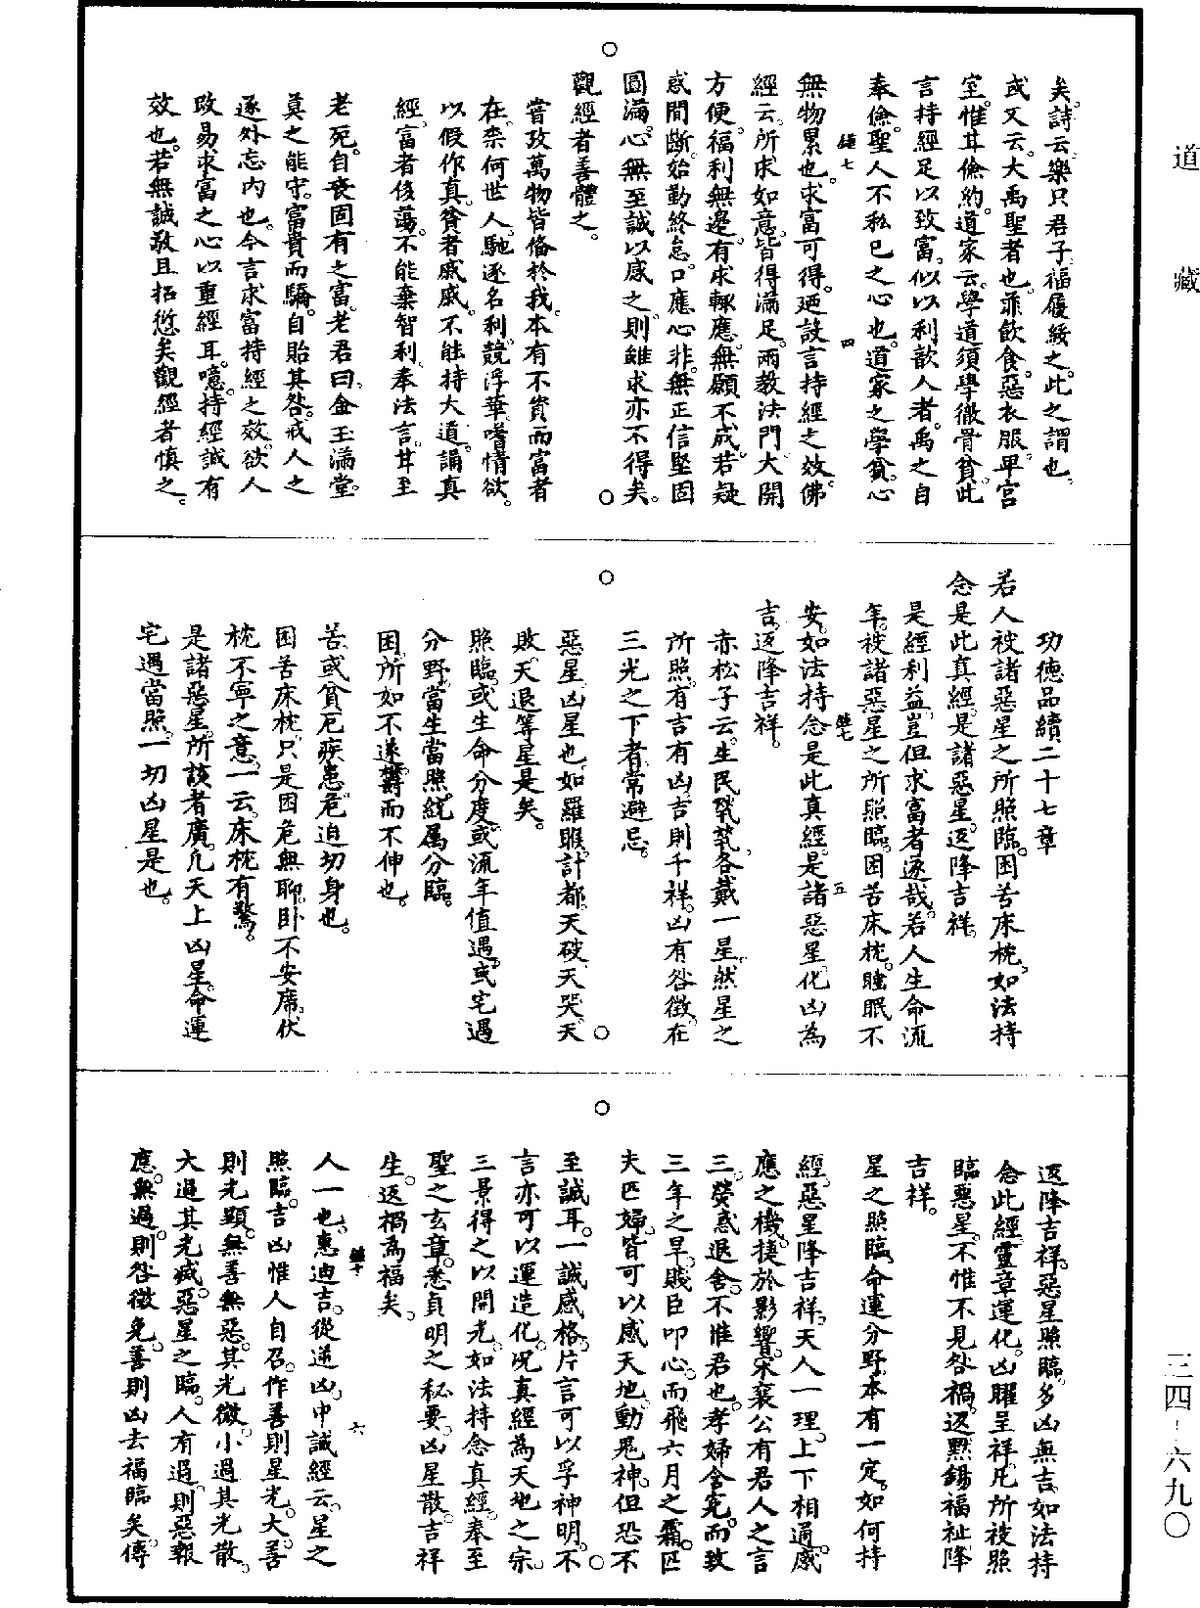 道藏
矣詩云樂只君子福履綏之此之謂也
或又云大禹聖者也菲飲食惡衣服卑宮
室惟其儉約道家云學道須學徹骨貧此
言持經足以致富似以利歆人者禹之自
奉儉聖人不私己之心也道家之學貧心
無物累也求富可得廼設言持經之效佛
經云所求如意皆得滿足兩教法門大開
方便福利無邊有求輒應無願不成若疑
惑間斷始勤終怠口應心非無正信堅固
圓滿心無至誠以感之則雖求亦不得矣
觀經者善體之
嘗攷萬物皆俻於我本有不貲而富者
在柰何世人馳逐名利競浮華嗜情欲
以假作真貧者戚戚不能持大道誦真
經富者佟蕩不能棄智利奉法言耳至
老死自喪固有之富老君曰金玉滿堂
莫之能守富貴而驕自貽其咎戒人之
逐外忘内也今言求富持經之效欲人
改易求富之心以重經耳噫持經誠有
效也若無誠敬且招愆矣觀經者慎之
功德品續二十七章
若人被諸惡星之所照臨困苦床枕如法持
念是此真經是諸惡星返降吉祥
是經利益豈但求富者遂哉若人生命流
年被諸惡星之所照臨困苦床枕睡眠不
安如法持念是此真經是諸惡星化凶為
吉返降吉祥
赤松子云生民煢煢各戴一星然星之
所照有吉有凶吉則千祥凶有咎徵在
三光之下者常避忌
惡星凶星也如羅睺計都天破天哭天
敗天退等星是矣
照臨或生命分度或流年值遇或宅遇
分野當生當照綂属分臨
困所如不遂籌而不伸也
苦或貧厄疾患危迫切身也
困苦床枕只是困危無聊卧不安席伏
枕不寧之意一云床枕有驚
是諸惡星所該者廣凢天上凶星命運
宅遇當照一切凶星是也
返降吉祥惡星照臨多凶無吉如法持
念此經靈章運化凶曜呈祥凢所被照
臨惡星不惟不見咎禍返黙錫福祉降
吉祥
星之照臨命運分野本有一定如何持
經惡星降吉祥天人一理上下相通感
應之機捷於影響宋襄公有君人之言
三熒惑退舍不惟君也孝婦含寃而致
三年之旱賤臣叩心而飛六月之霜匹
夫匹婦皆可以感天地動鬼神但恐不
至誠耳一誠感格片言可以孚神明不
言亦可以運造化况真經為天地之宗
三景得之以開光如法持念真經奉至
聖之玄章悉貞明之秘要凶星散吉祥
生返禍為福矣
人一也惠迪吉從逆凶中誠經云星之
照臨吉凶惟人自召作善則星光大善
則光顯無善無惡其光微小過其光散
大過其光滅惡星之臨人有過則惡報
應無過則咎徵免善則凶去福臨矣傳
三四-六九〇